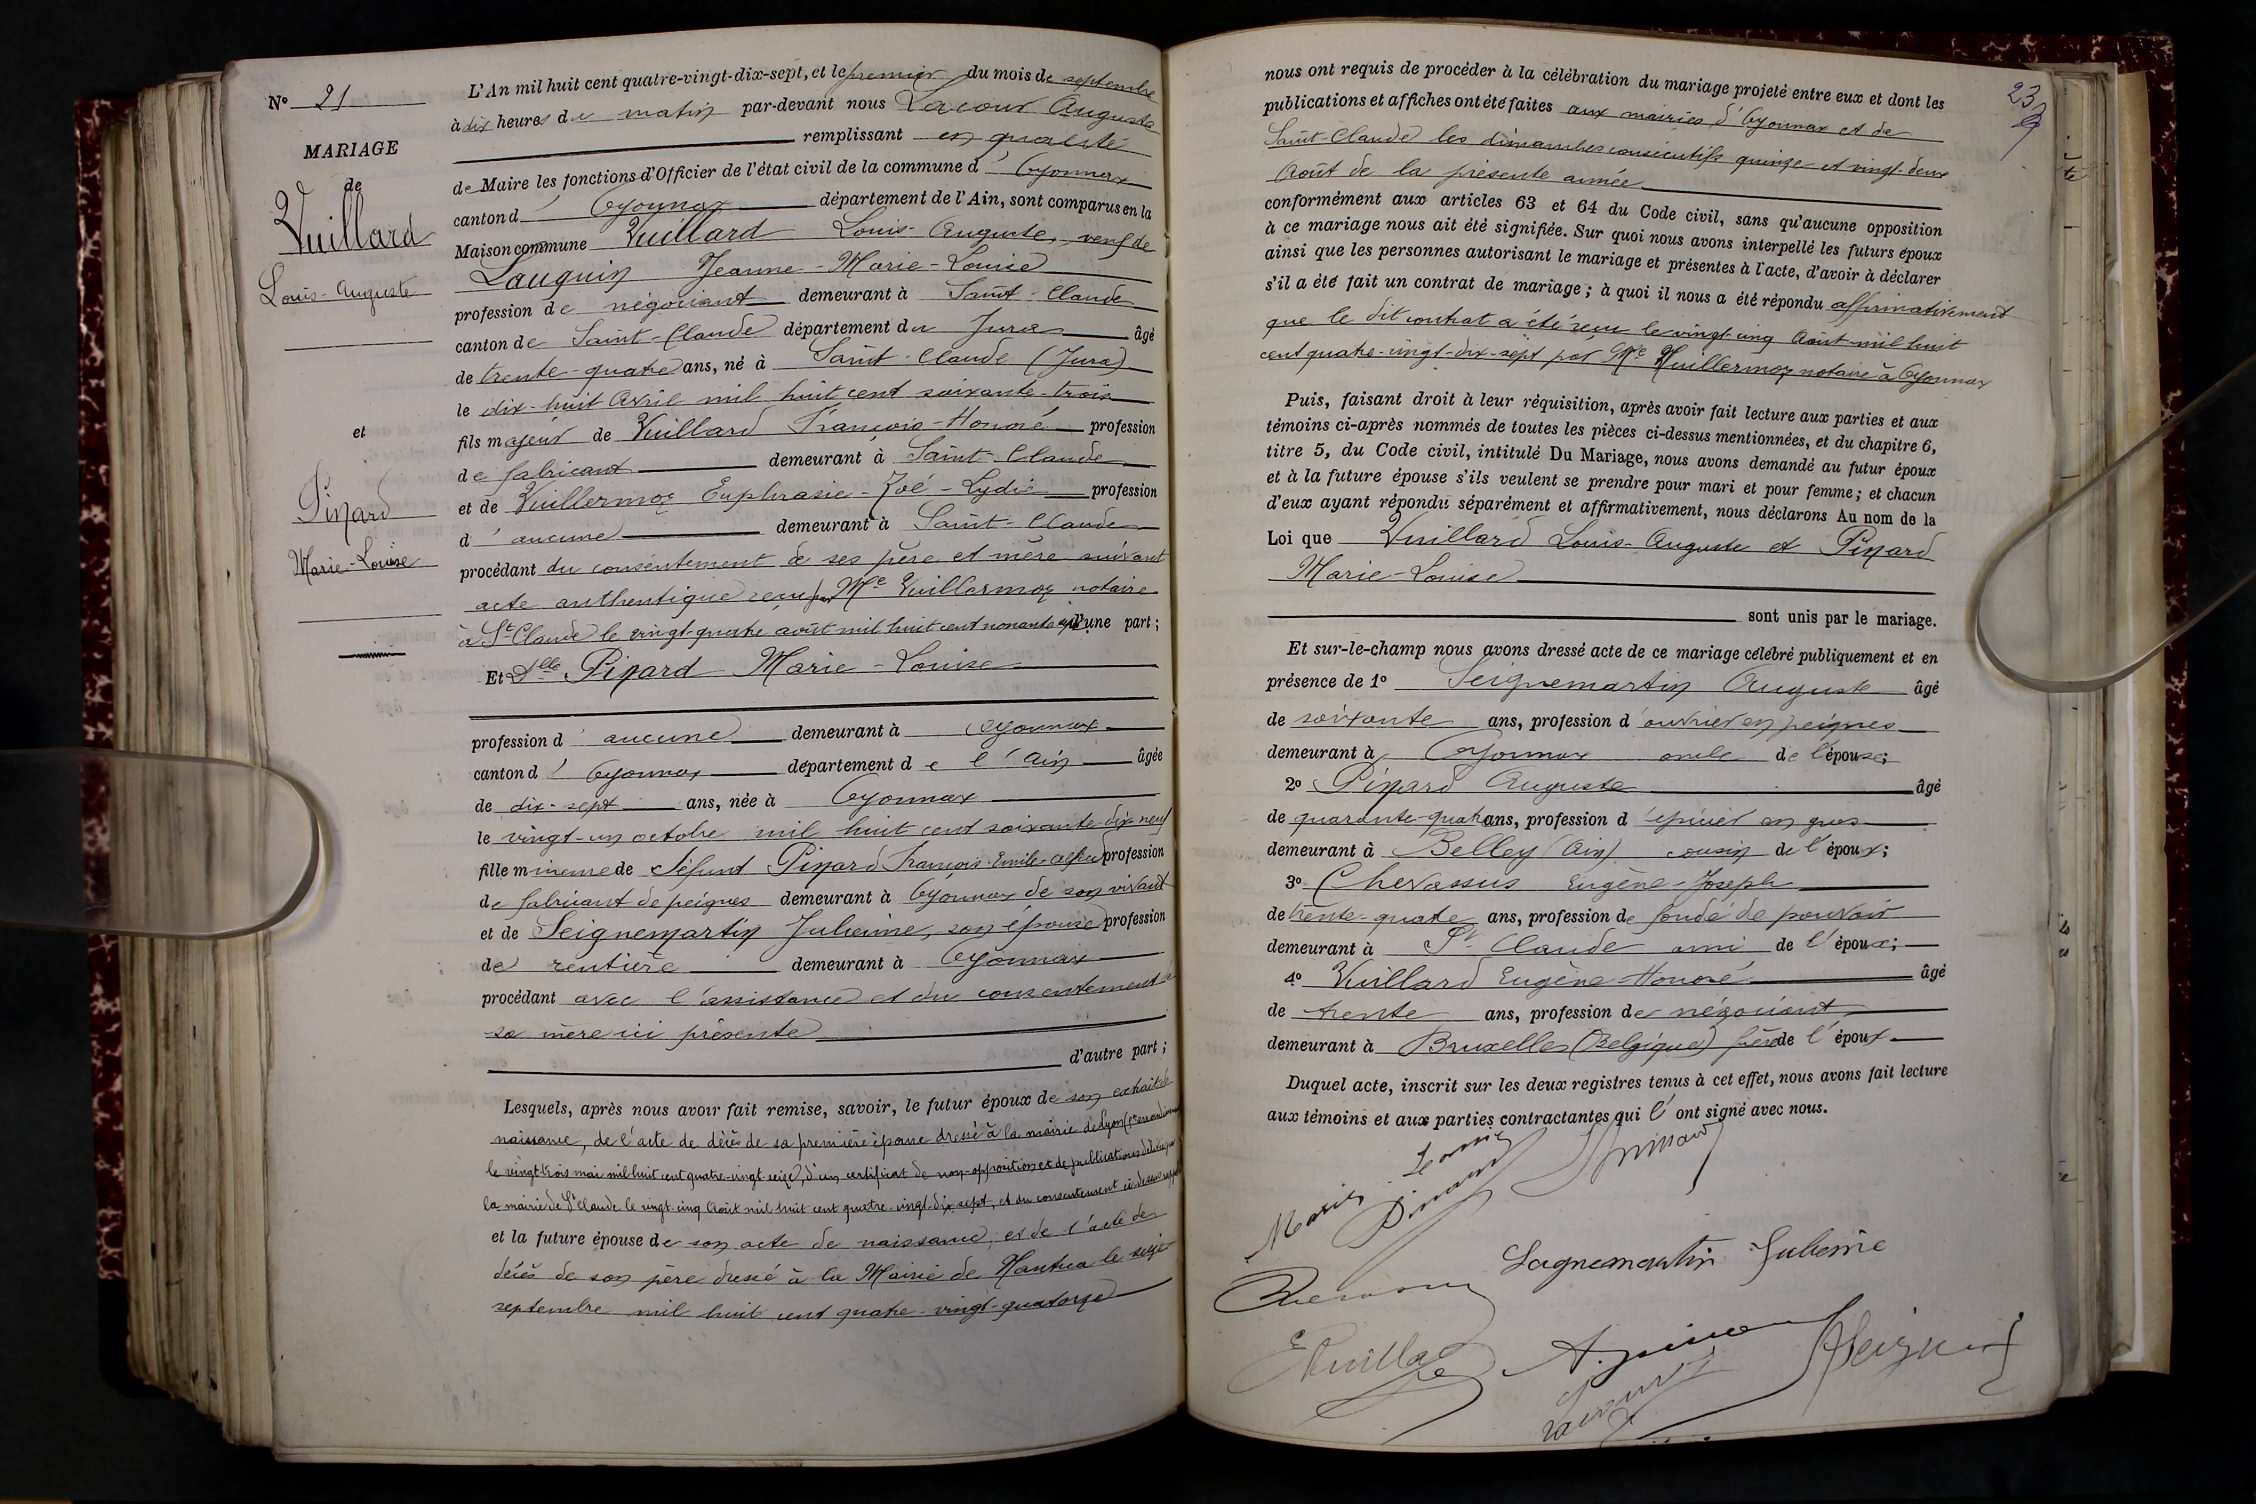 N° 21
MARIAGE
de
Vuillard
Louis-Auguste
et
Pinard
Marie-Louise
L'An mil huit cent quatre-vingt-dix-sept, et le premier du mois de septembre
à dix heures du matin par-devant nous Lacour Auguste
remplissant en qualité
de Maire les fonctions d'Officier de l'état civil de la commune d'Oyonnax
canton d'Oyonnax département de l'Ain, sont comparus en la
Maison commune Vuillard Louis-Auguste, veuf de
Lauquin Jeanne-Marie-Louise
profession de négociant demeurant à Saint-Claude
canton de Saint-Claude département du Jura âgé
de trente-quatre ans, né à Saint-Claude (Jura)
le dix-huit Avril mil huit cent soixante-trois
fils majeur de Vuillard François-Honoré profession
de fabricant demeurant à Saint-Claude
et de Vuillermoz Euphrasie-Zoé-Lydie profession
d'aucune demeurant à Saint-Claude
procédant du consentement de ses père et mère suivant
acte authentique reçu par Me Vuillermoz notaire
à St Claude le vingt-quatre août mil huit cent nonante sept d'une part;
Et Dlle Pinard Marie-Louise
profession d'aucune demeurant à Oyonnax
canton d'Oyonnax département de l'Ain âgée
de dix-sept ans, née à Oyonnax
le vingt-un octobre mil huit cent soixante-dix neuf
fille mineure de défunt Pinard François-Emile-Alfred profession
de fabricant de peignes demeurant à Oyonnax de son vivant
et de Seignemartin Julienne, son épouse profession
de rentière demeurant à Oyonnax
procédant avec l'assistance et du consentement de
sa mère ici présente
d'autre part;
Lesquels, après nous avoir fait remise, savoir, le futur époux de son extrait de
naissance, de l'acte de décès de sa première épouse dressé à la mairie de Lyon
le vingt-trois mai mil huit cent quatre-vingt-seize, d'un certificat de non-opposition et de publications délivré par
la mairie de St Claude le vingt-cinq Août mil huit cent quatre-vingt-dix-sept, et du consentement ci-dessus
et la future épouse de son acte de naissance, et de l'acte de
décès de son père dressé à la Mairie de Nantua le seize
septembre mil huit cent quatre-vingt-quatorze
23
nous ont requis de procéder à la célébration du mariage projeté entre eux et dont les
publications et affiches ont été faites aux mairies d'Oyonnax et de
Saint-Claude les dimanches consécutifs quinze et vingt-deux
Août de la présente année
conformément aux articles 63 et 64 du Code civil, sans qu'aucune opposition
à ce mariage nous ait été signifiée. Sur quoi nous avons interpellé les futurs époux
ainsi que les personnes autorisant le mariage et présentes à l'acte, d'avoir à déclarer
s'il a été fait un contrat de mariage; à quoi il nous a été répondu affirmativement
que le dit contrat a été reçu le vingt-cinq Août mil huit
cent quatre-vingt-dix-sept par Me Vuillermoz notaire à Oyonnax
Puis, faisant droit à leur réquisition, après avoir fait lecture aux parties et aux
témoins ci-après nommés de toutes les pièces ci-dessus mentionnées, et du chapitre 6,
titre 5, du Code civil, intitulé Du Mariage, nous avons demandé au futur époux
et à la future épouse s'ils veulent se prendre pour mari et pour femme; et chacun
d'eux ayant répondu séparément et affirmativement, nous déclarons Au nom de la
Loi que Vuillard Louis-Auguste et Pinard
Marie-Louise
sont unis par le mariage.
Et sur-le-champ nous avons dressé acte de ce mariage célébré publiquement et en
présence de 1° Seignemartin Auguste âgé
de soixante ans, profession d'ouvrier en peignes
demeurant à Oyonnax oncle de l'épouse;
2° Pinard Auguste âgé
de quarante-quatre ans, profession d'épicier en gros
demeurant à Belley (Ain) cousin de l'époux;
3° Chevassus Eugène-Joseph
de trente-quatre ans, profession de fondé de pouvoir
demeurant à St Claude ami de l'époux;
4° Vuillard Eugène-Honoré âgé
de trente ans, profession de négociant
demeurant à Bruxelles (Belgique) frère de l'époux
Duquel acte, inscrit sur les deux registres tenus à cet effet, nous avons fait lecture
aux témoins et aux parties contractantes qui l'ont signé avec nous.
Marie Louise
Pinard
Segnemartin Julienne
EVuillard
A. Pinard